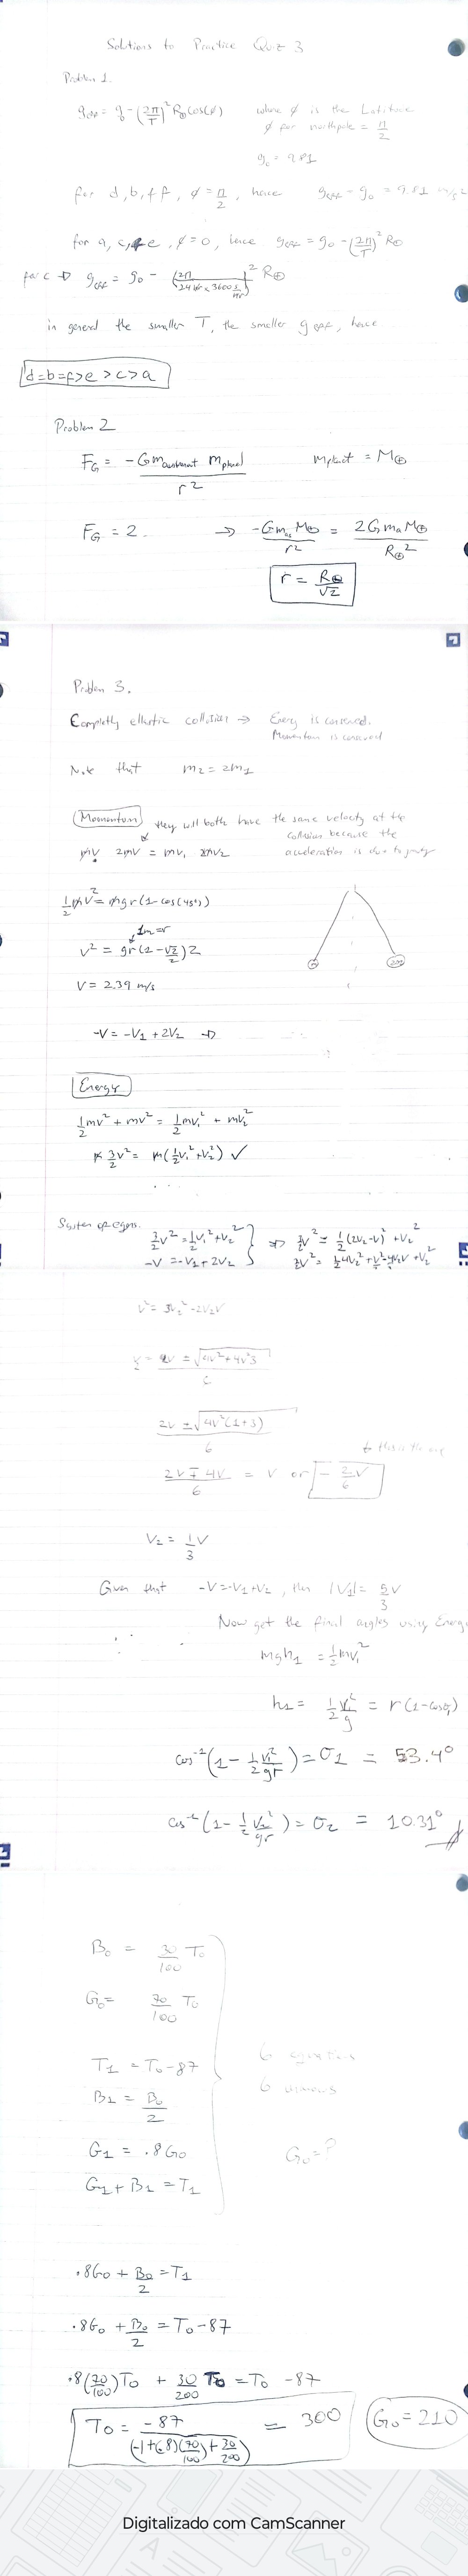 Solutions to Practice Quiz 3
Problem 1.
g_eff = g - (2π/T)² R⊕ cos(φ) where φ is the Latitude
φ for northpole = π/2
g₀ = 9.81
for d, b, & f, φ = π/2, hence g_eff = g₀ = 9.81 m/s²
for a, c, & e, φ = 0, hence g_eff = g₀ - (2π/T)² R⊕
for c → g_eff = g₀ - (2π/(24hr × 3600 s/hr))² R⊕
in general the smaller T, the smaller g_eff, hence
d=b=f>e>c>a
Problem 2
F_G = -G m m_planet / r² m_planet = M⊕
F_G = 2. → -G m M⊕ / r² = 2G m_a M⊕ / R⊕²
r = R⊕/√2
Problem 3.
Completly ellastic collition → Energy is conserved.
Momentum is conserved
Note that m₂ = 2m₁
Momentum they will both have the same velocity at the
collision because the
mV 2mV = mV₁ 2mV₂ acceleration is due to gravity
½mV² = mgr(1-cos(45°))
1m=r
V² = gr(1-√2/2)2
V = 2.39 m/s
m 2m
-V = -V₁ + 2V₂ →
Energy
½mV² + mV² = ½mV₁² + mV₂²
m 3/2 V² = m(½V₁² + V₂²) ✓
. . .
System of eqns.
3/2 V² = ½V₁² + V₂² } ⇒ 3/2 V² = ½(2V₂-V)² + V₂²
-V = -V₁ + 2V₂
V² = 3V₂² - 2V₂V
2V ± √(4V² + 4V²3) / 6
2V ± √(4V²(1+3)) / 6
← this is the one
2V ∓ 4V / 6 = V or - 2/6 V
V₂ = 1/3 V
Given that -V = -V₁ + V₂, then |V₁| = 5/3 V
Now get the final angles using Energ
mgh₁ = ½mV₁²
h₁ = ½ V₁²/g = r(1-cosθ₁)
cos⁻¹(1 - ½ V₁²/gr) = σ₁ = 53.4°
cos⁻¹(1 - ½ V₂²/gr) = σ₂ = 10.31°
B₀ = 30/100 T₀
G₀ = 70/100 T₀
T₁ = T₀ - 87 6 equations
B₁ = B₀/2 6
G₁ = .8G₀ G₀ = ?
G₁ + B₁ = T₁
.8G₀ + B₀/2 = T₁
.8G₀ + B₀/2 = T₀ - 87
.8(70/100)T₀ + 30/200 T₀ = T₀ - 87
T₀ = -87 / (-1+(.8)(70/100)+30/200) = 300 G₀ = 210
Digitalizado com CamScanner